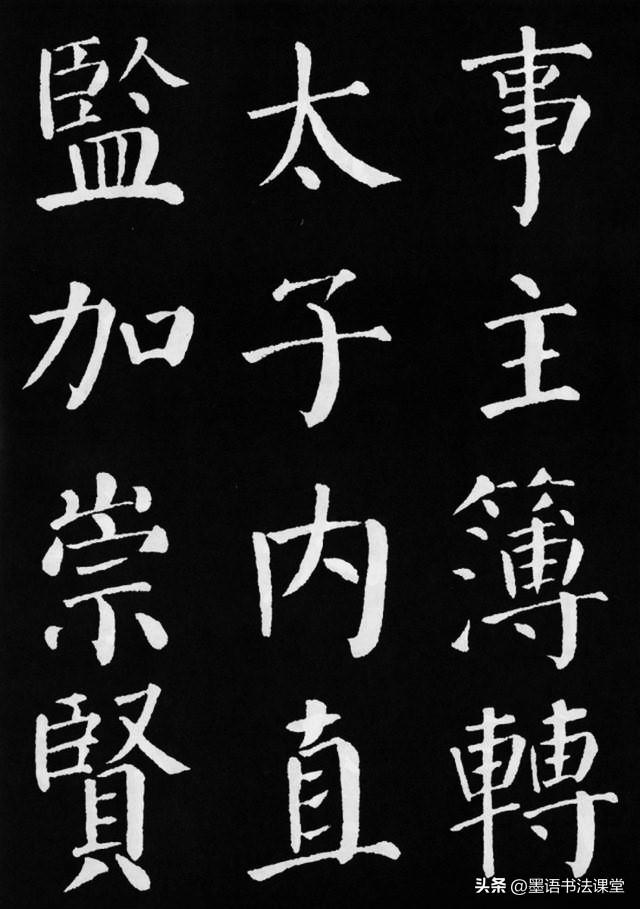 事主簿轉
太子内直
監加崇賢
头条 @墨语书法课堂